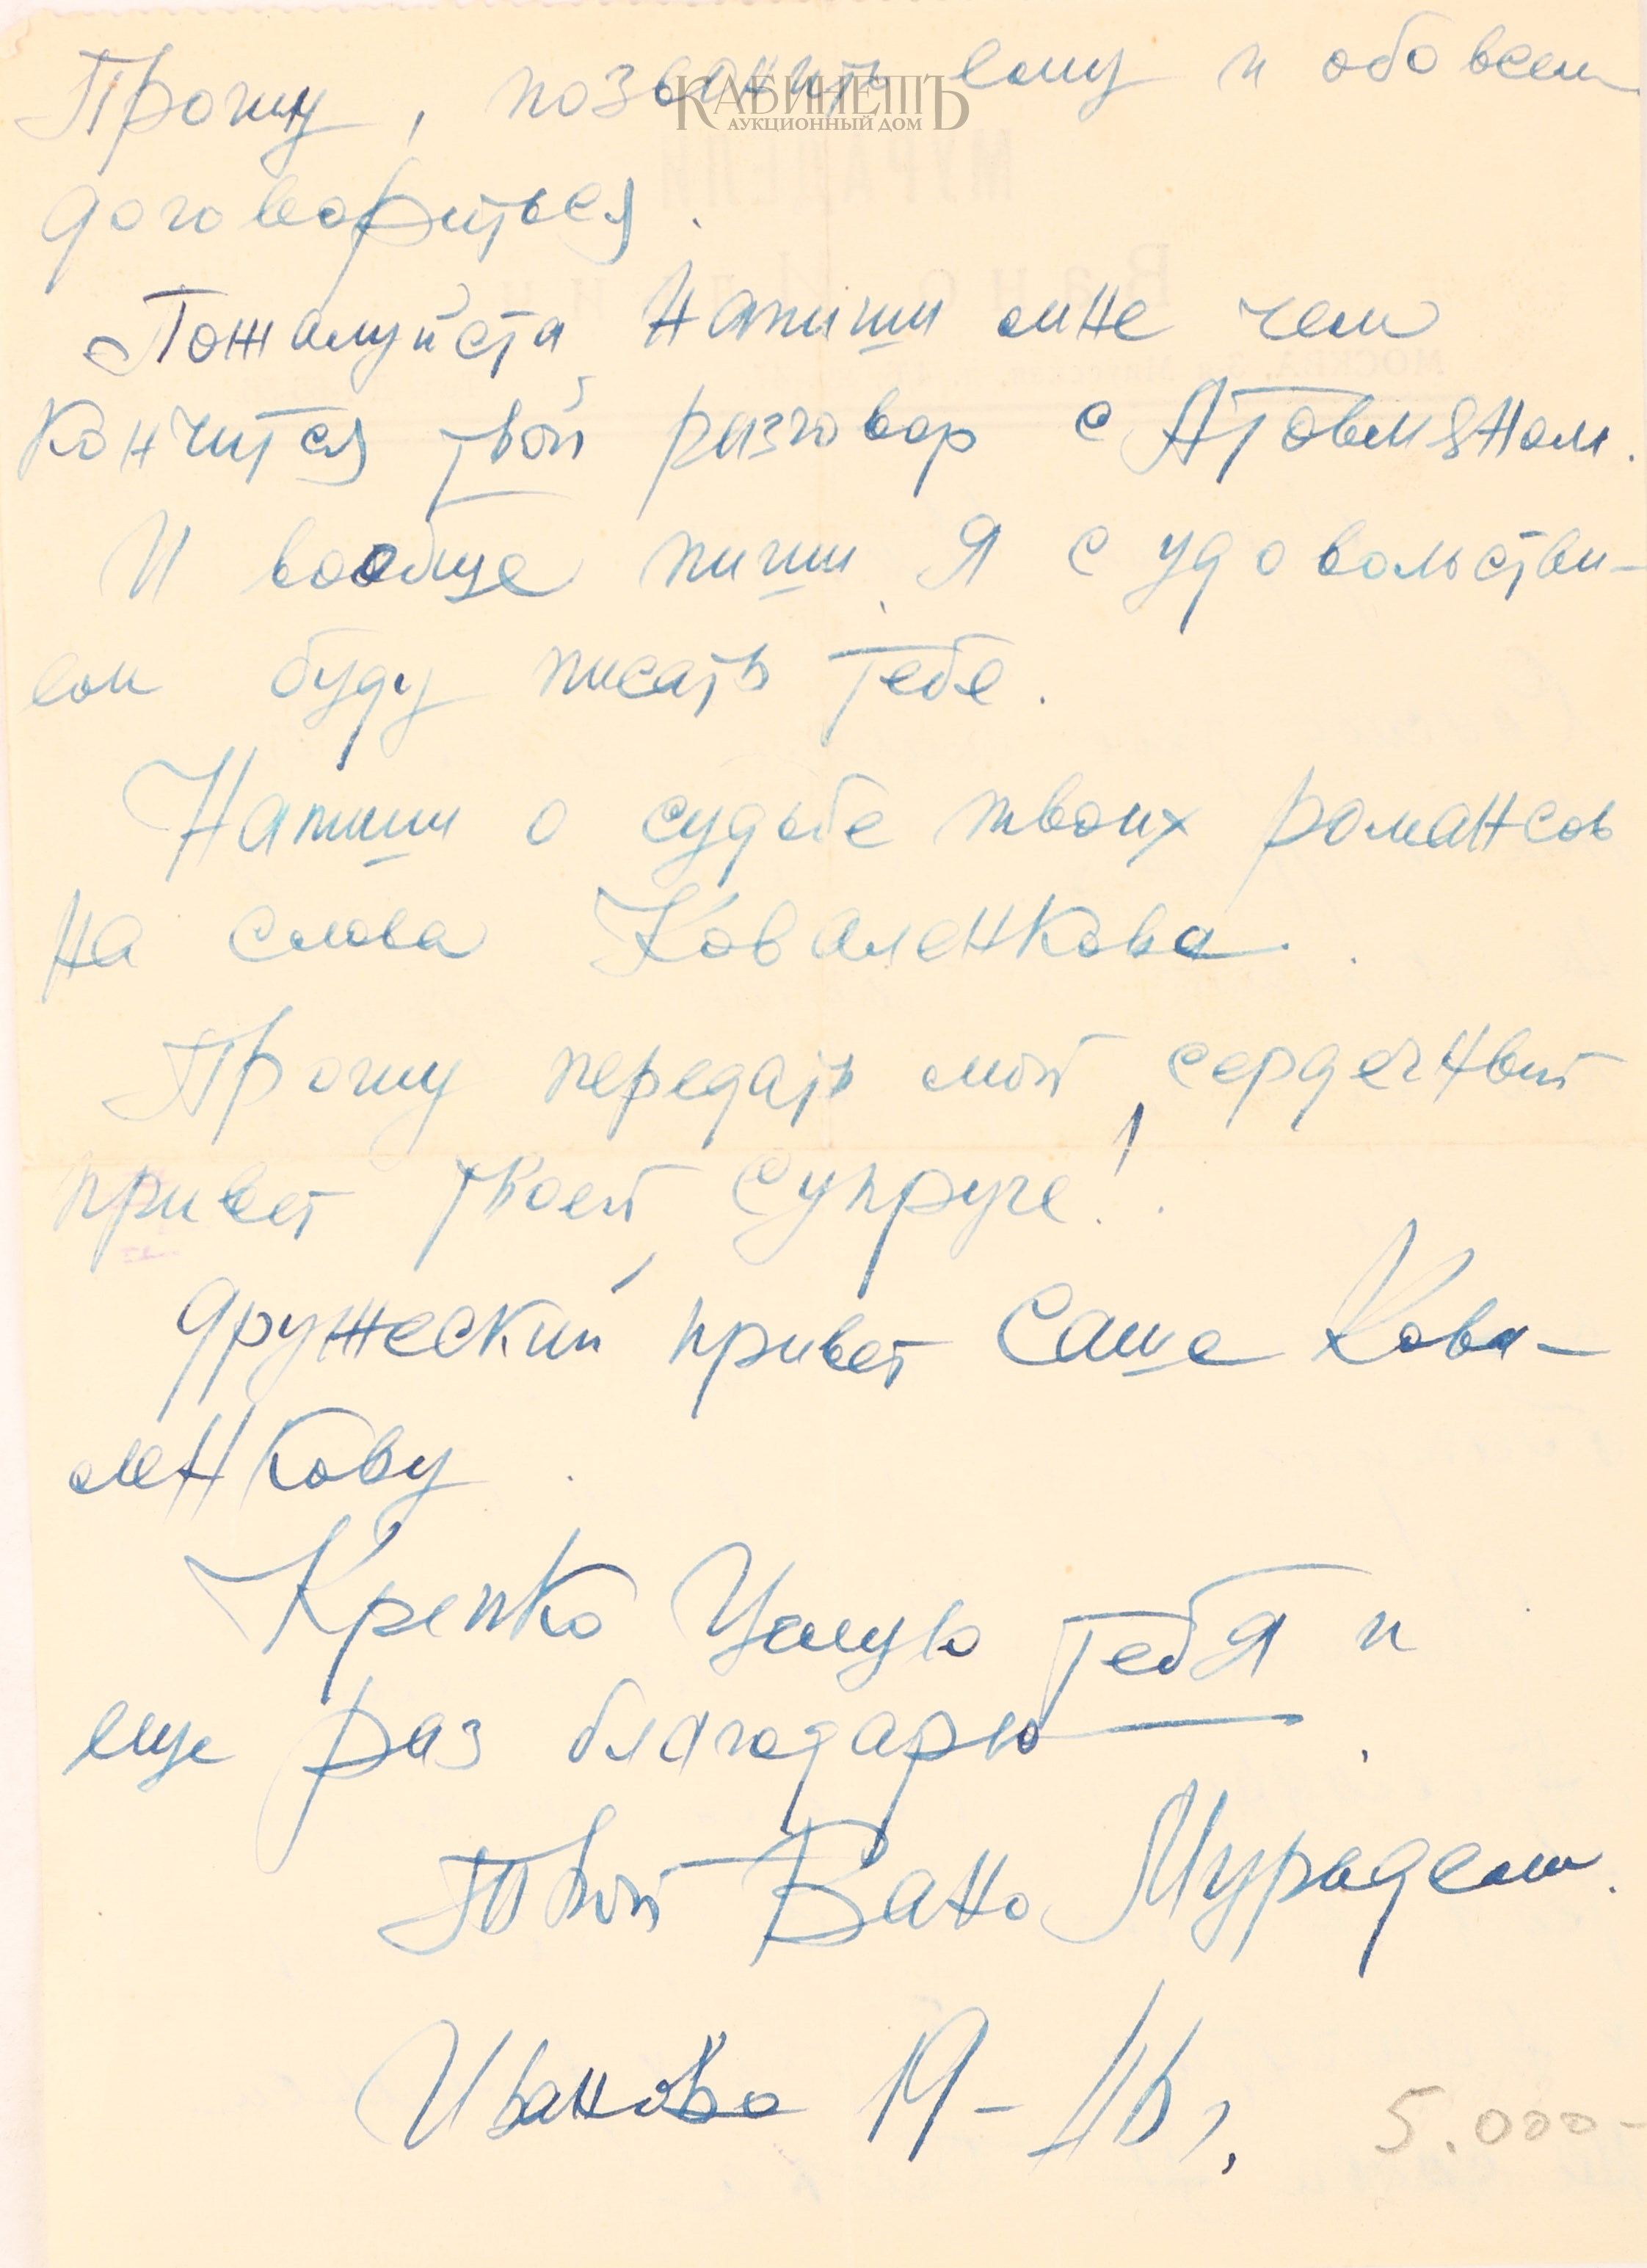 Прошу, позвонить ему и обо всем
КАБИНЕТЪ
АУКЦИОННЫЙ ДОМ
договориться.
Пожалуйста, напиши мне чем
кончится твой разговор с Атовмяном.
И вообще пиши. Я с удовольстви-
ем буду писать тебе.
Напиши о судьбе твоих романсов
на слова Коваленкова.
Прошу передать мой сердечный
привет твоей супруге!
Дружеский привет Саше Кова-
ленкову.
Крепко целую тебя и
еще раз благодарю.
Твой Вано Мурадели.
Иваново 19
5.000-